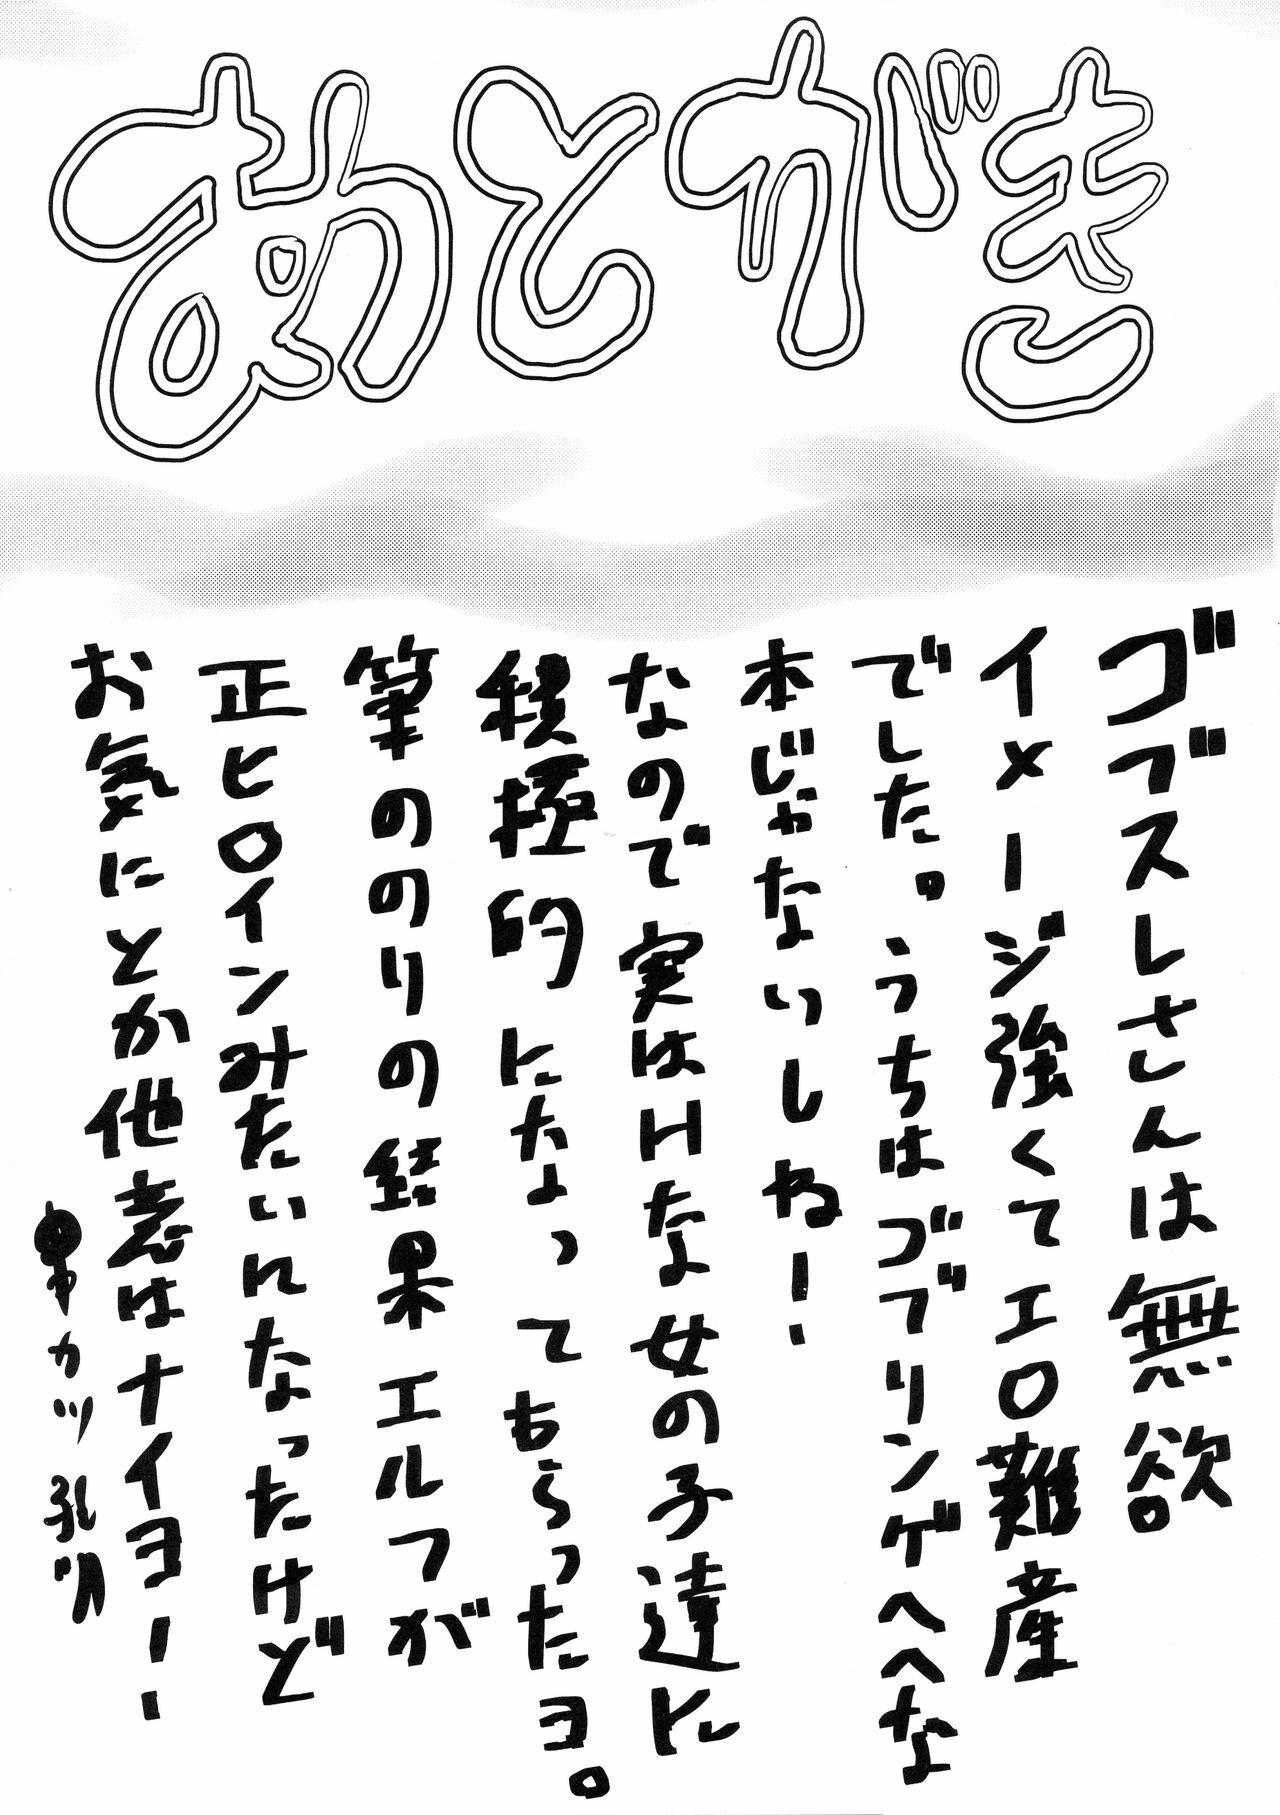 あとがき
ゴブスレさんは無欲
イメージ強くてエロ難産
でした。うちはゴブリンゲヘヘな
本じゃないしね!
なので実はHな女の子達に
積極的になってもらったヨ。
筆ののりの結果エルフが
正ヒロインみたいになったけど
お気にとか他意はナイヨー!
カツ